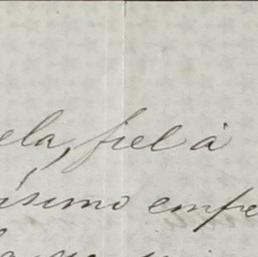 ela, fiel à
ísimo empe